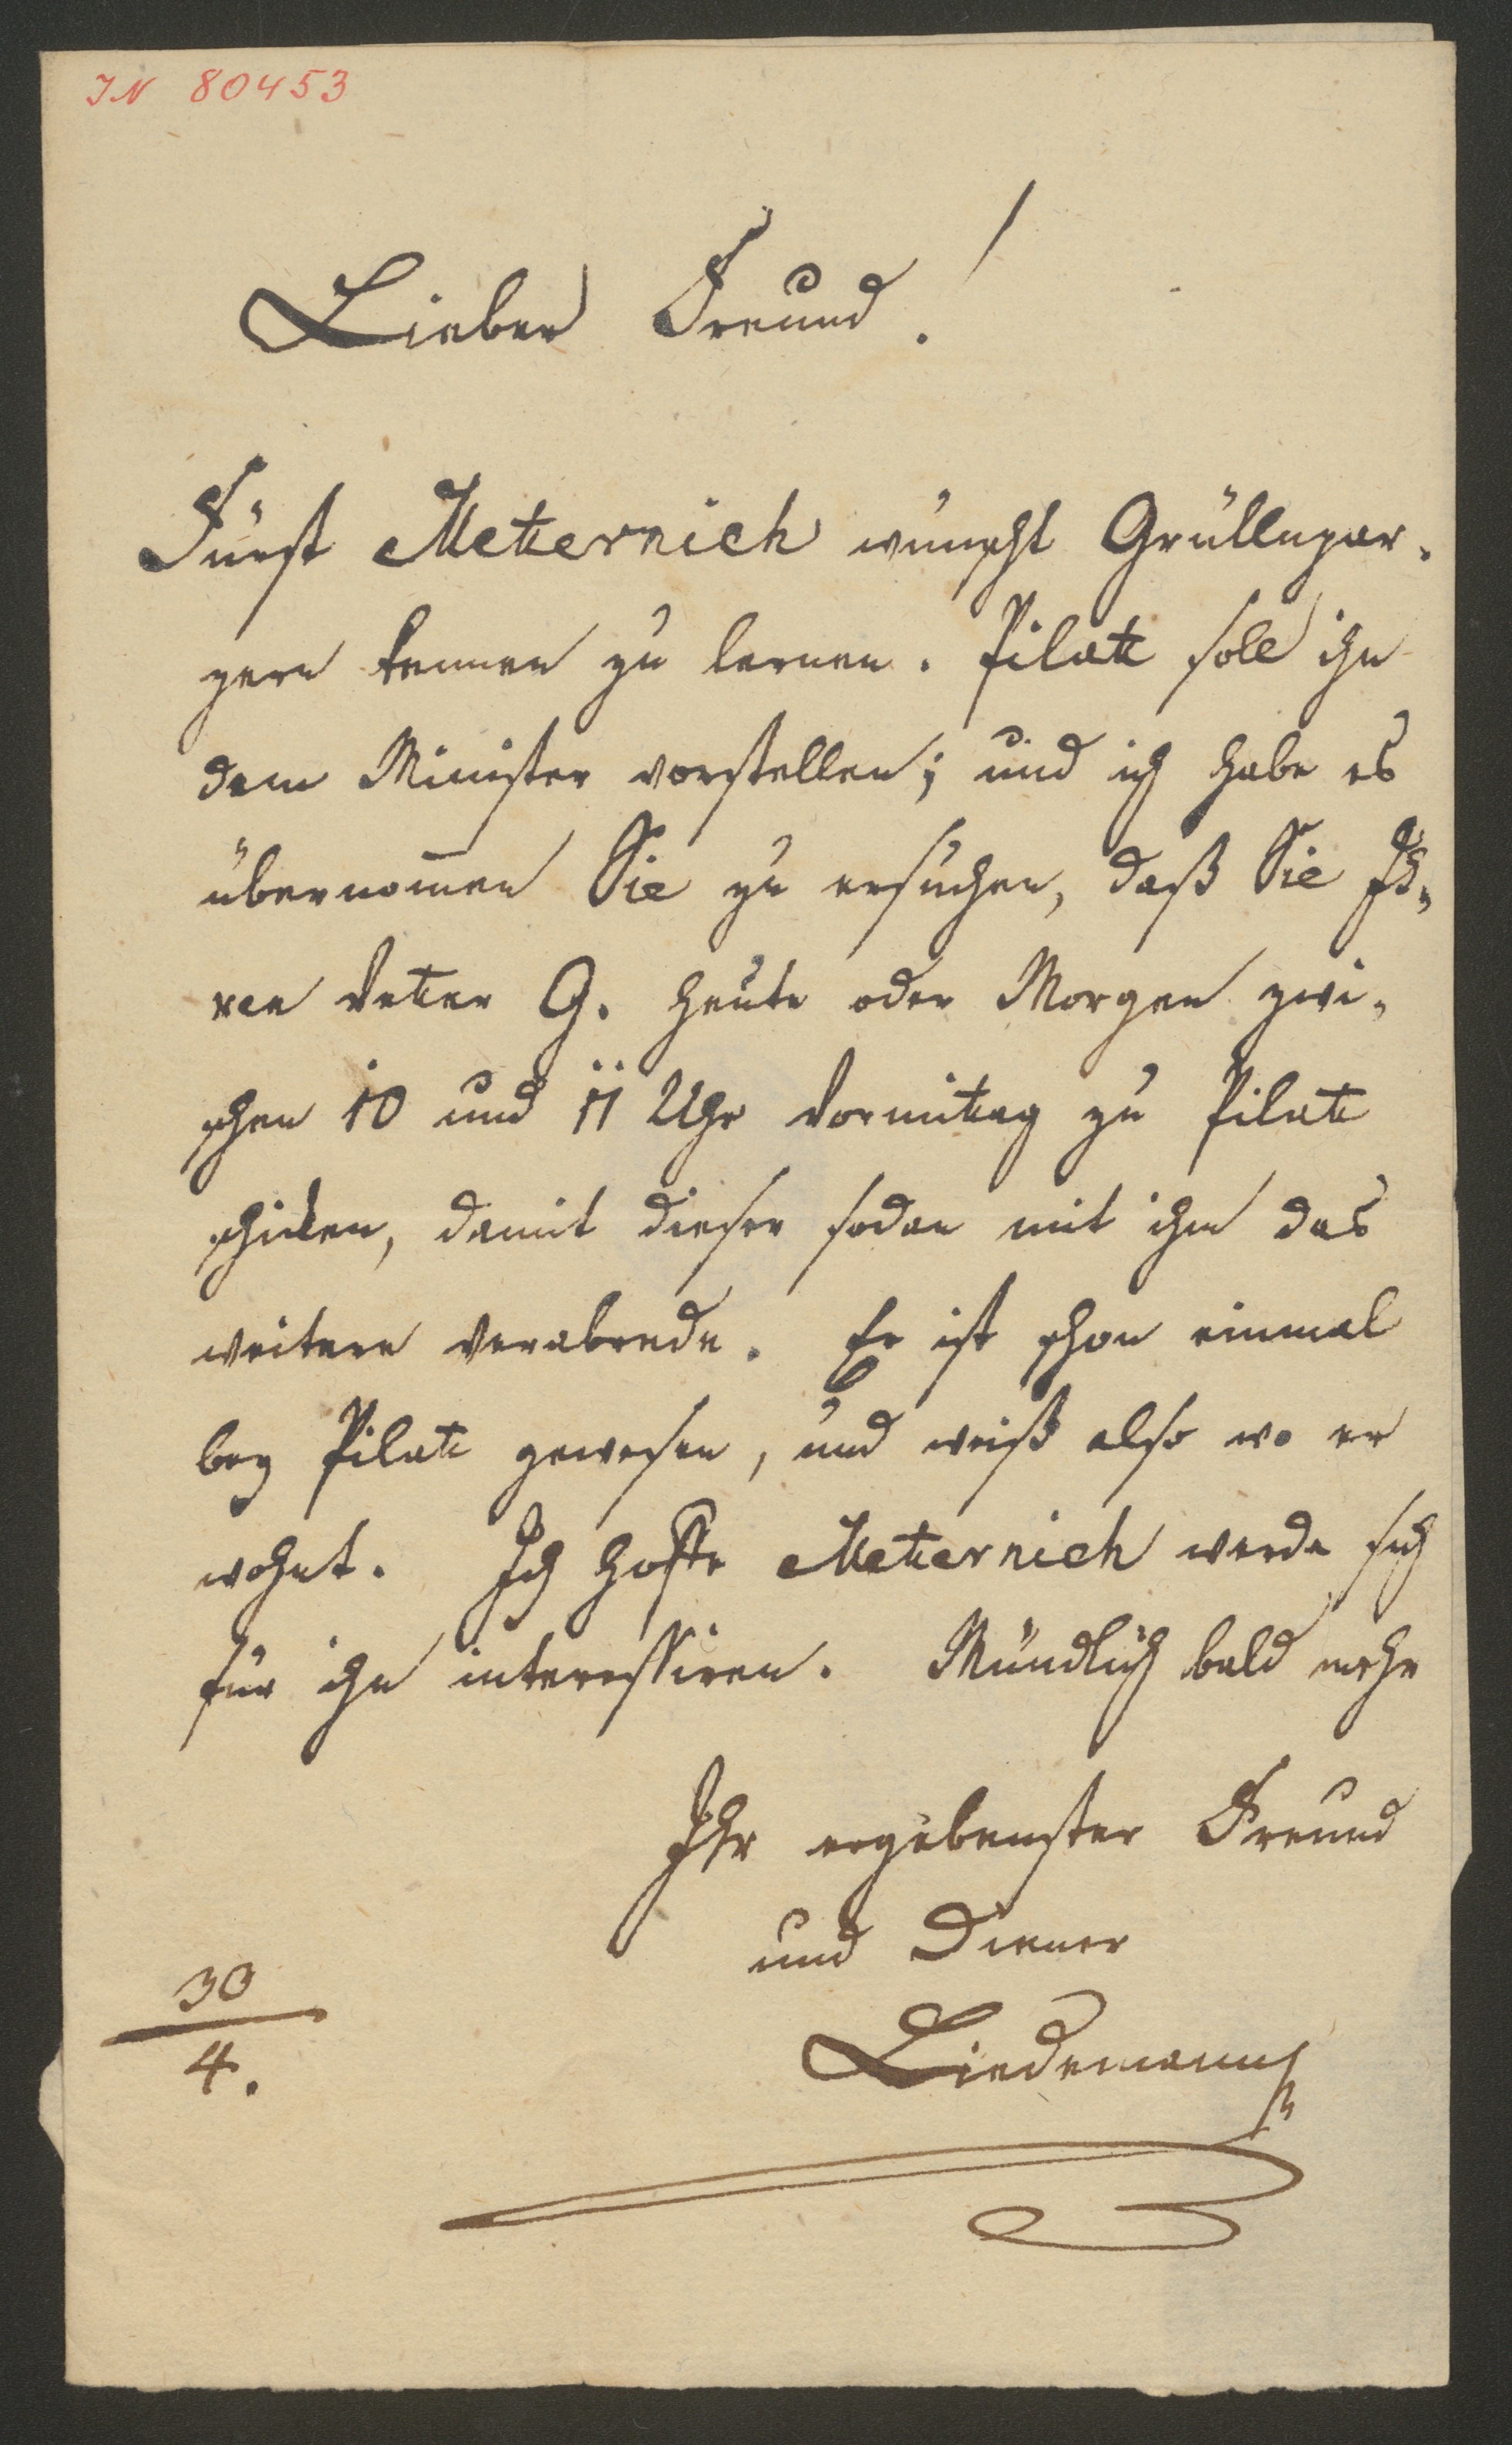 IN 80453
Lieber Freund!
Fürst Metternich wünscht Grüllupar-
zern kennen zu lernen. Pilatt soll ihn
dem Minister vorstellen; und ich habe es
übernom̄en Sie zu ersuchen, daß Sie Ih-
ren Vetter G. heute oder Morgen zwi-
schen 10 und 11 Uhr Vormittag zu Pilatt
schicken, damit dieser sodan mit ihm das
weitere verabrede. Er ist schon einmal
bey Pilatt gewesen, und weiß also wo er
wohnt. Ich hoffe Metternich werde sich
für ihn interessiren. Mündlich bald mehr
Ihr ergebenster Freund
und Diener
Liedemann
30
4.